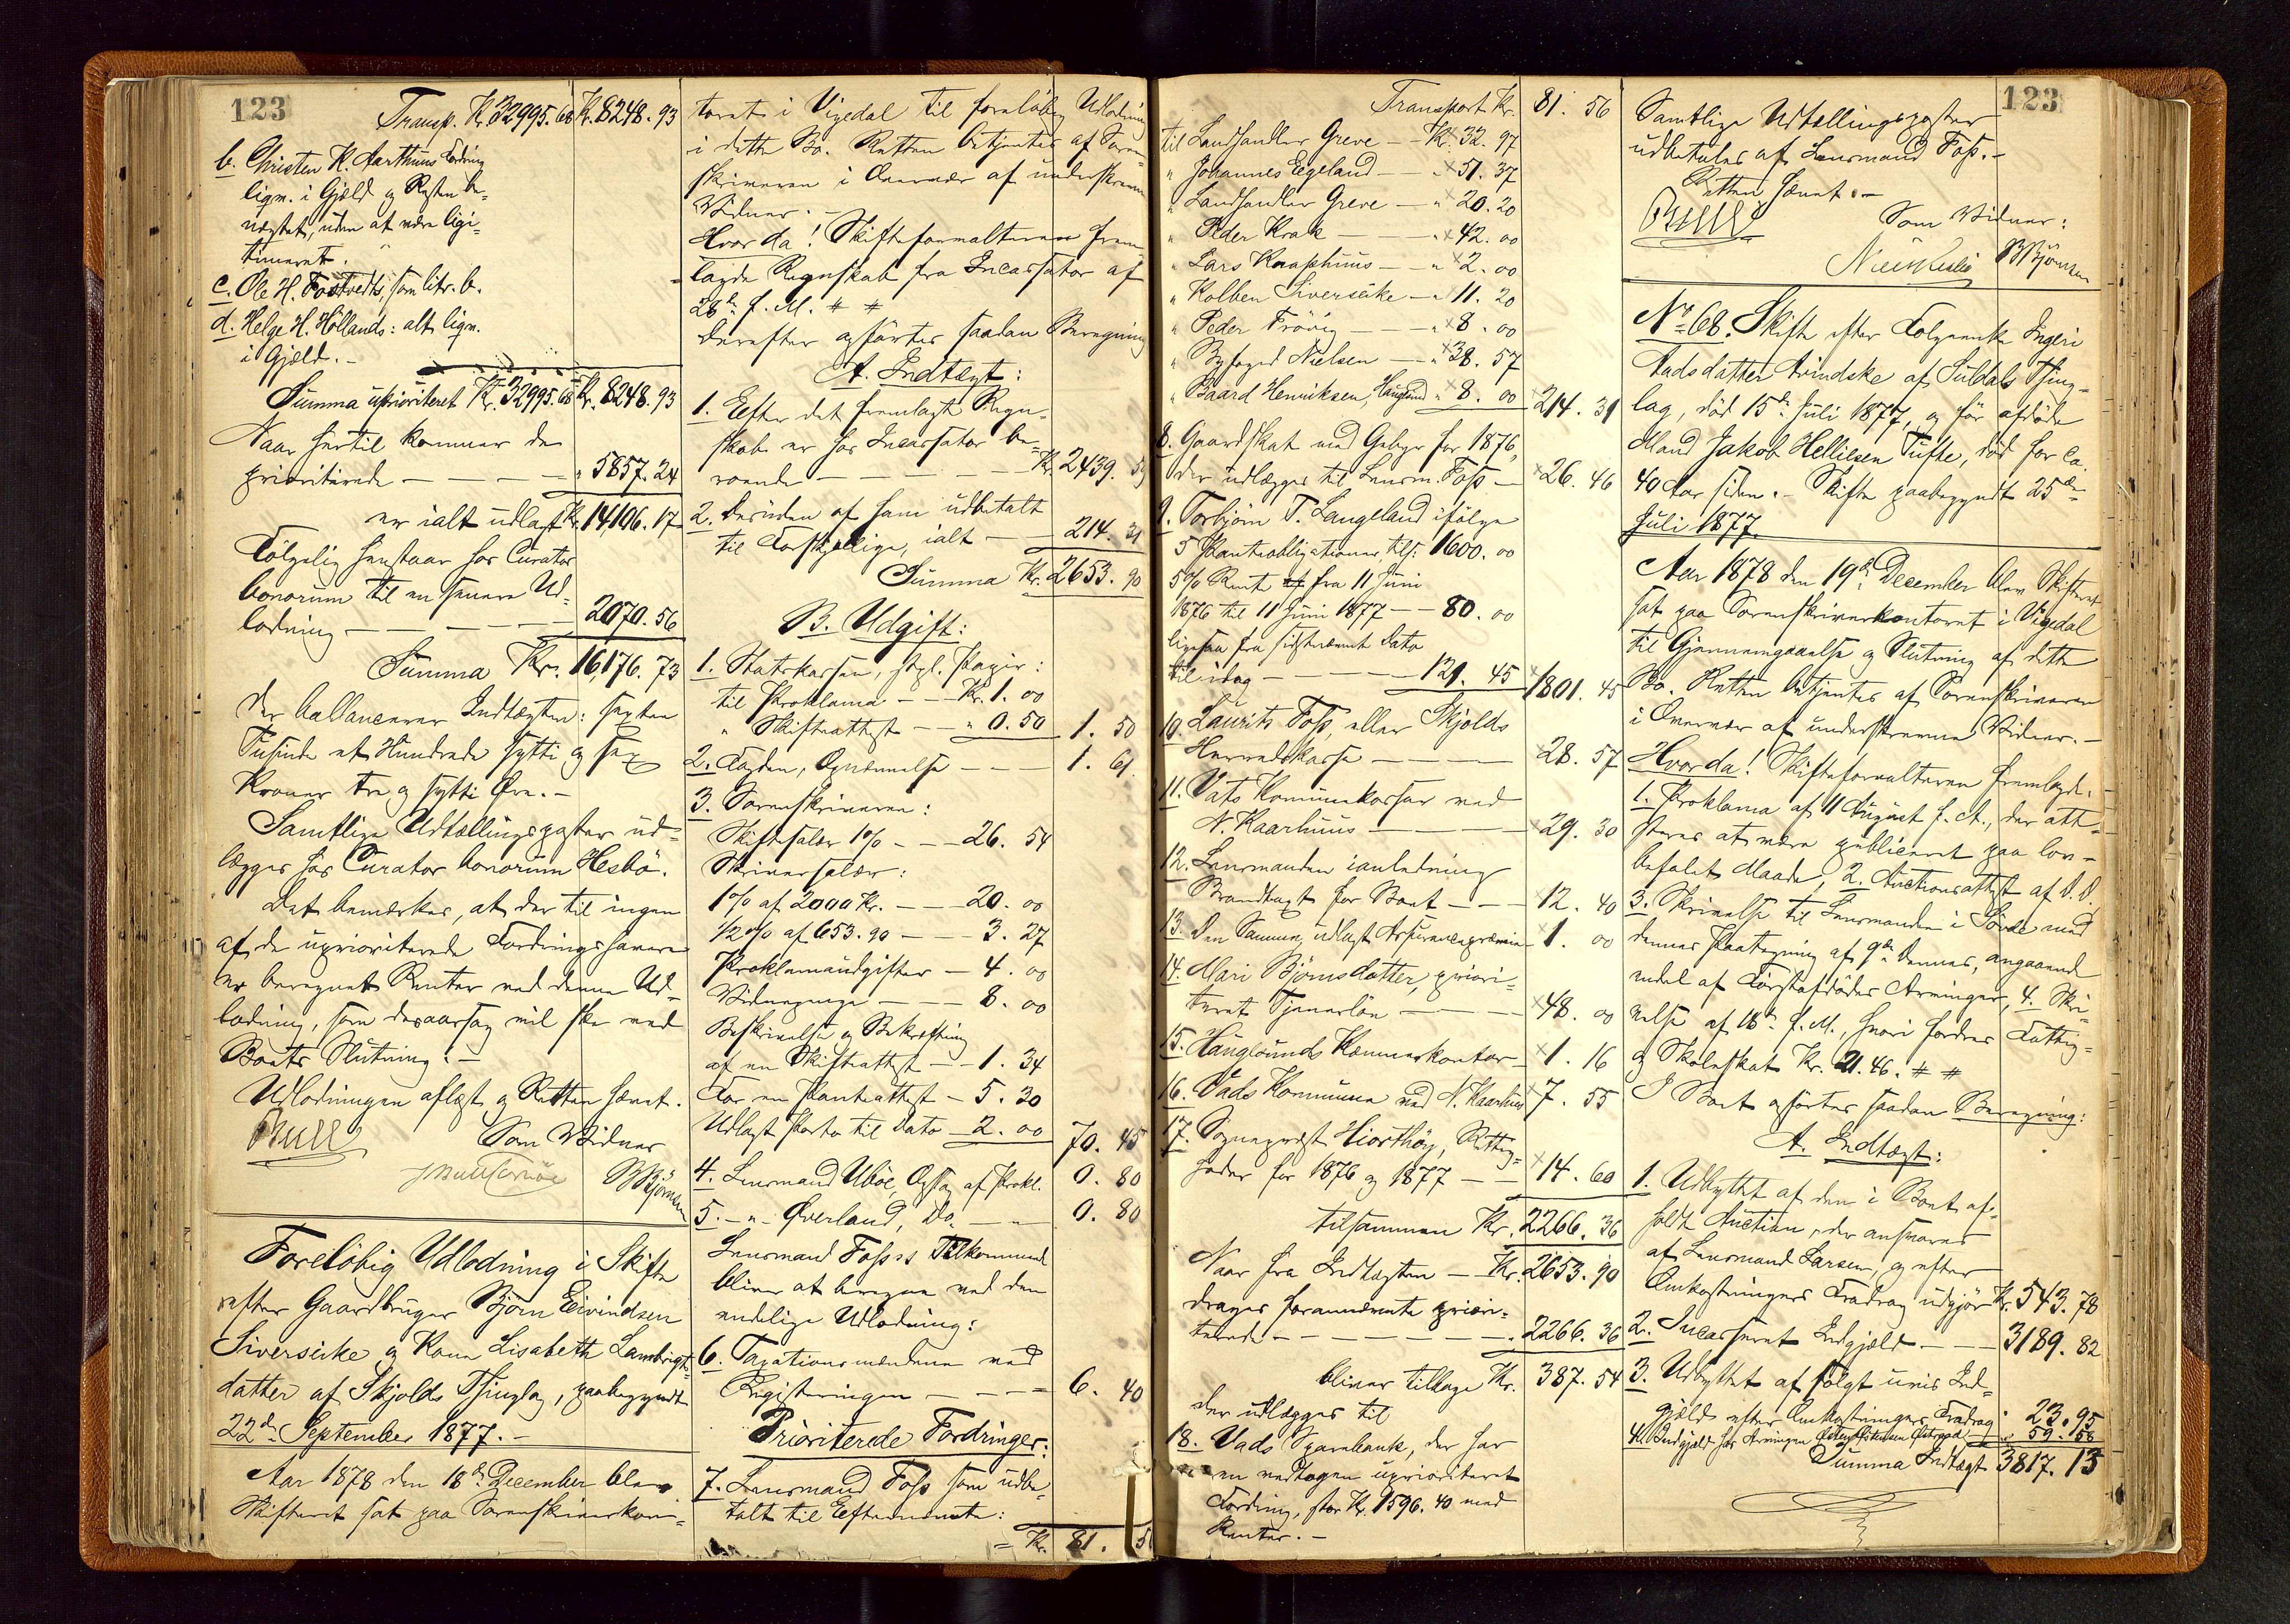 123
Transp. Kr. 32995.68 Kr. 8248.93
b. Christen K. Aarthuus Fordring
lign. i Gjæld og Resten be-
nægtet, uden at være legi-
timeret.
c. Ole H. Fostvedts, som litr. b.
d. Helge H. Höllands: alt lign.
i Gjæld. -
Summa uprioriteret Kr. 32995.68 Kr. 8248.93
Naar hertil kommer de
prioriterede - - - - " 5857.24
er ialt udlagt Kr. 14,106.17
Fölgelig henstaar hos Curator
bonorum til en senere Ud-
lodning - - - - - 2070.56
Summa Kr. 16,176.73
der ballancerer Indtægten: sexten
Tusinde et Hundrede sytti og sex
Kroner tre og sytti Öre. -
Samtlige Udtællingsposter ud-
lægges hos Curator bonorum Hesbö.
Det bemærkes, at der til ingen
af de uprioriterede Fordringshavere
er beregnet Renter ved denne Ud-
lodning, som desaarsag vil ske ved
Boets Slutning. -
Udlodningen aflagt og Retten hævet.
Bull
Som Vidner
B Björnsen
Foreløbig Udlodning i Skifte
efter Gaardbruger Björn Eivindsen
Siverseike og Kone Lisabeth Lambrigt-
datter af Skjolds Thinglag, paabegyndt
22de September 1877. -
Aar 1878 den 18de December blev
Skifteret sat paa Sorenskriverkon-
toret i Vigedal til foreløbig Udlodning
i dette Bo. Retten betjentes af Soren-
skriveren i Overvær af underskrevne
Vidner. -
Hvor da! Skifteforvalteren frem-
lagde Regnskab fra Incassator af
28de f. M. # #
Derefter opførtes saadan Beregning
A. Indtægt:
1. Efter det fremlagte Regn-
skab er hos Incassator be-
roende - - - - Kr. 2439. 59
2. Desuden af ham udbetalt
til Forskjellige, ialt - - 214. 31
Summa Kr. 2653. 90
B. Udgift:
1. Statskassen, stpl. Papir:
til Proklama - - Kr. 1. 00
" Skifteattest - - " 0. 50 1. 50
2. Fogden, Opnævnelse - - - 1. 61
3. Sorenskriveren:
Skiftesalær 1% - - - 26. 54
Skriversalær:
1% af 2000 Kr. - - - 20. 00
1/2% af 653.90 - - 3. 27
Proklamaudgifter - 4. 00
Vidnepenge - - - 8. 00
Beskrivelse og Bekræftning
af en Skifteattest - - 1. 34
For en Panteattest - 5. 30
Udlagt Porto til Dato - 2. 00 70. 45
4. Lensmand Uböe, Opslag af Prokl. 0. 80
5. - " - Överland, Do. - " 0. 80
Lensmand Foss's Tilkommende
bliver at beregne ved den
endelige Udlodning:
6. Taxationsmændene ved
Registeringen - - - 6. 40
Prioriterede Fordringer:
7. Lensmand Foss som udbe-
talt til Eftennævnte:
= Kr. 81. 5
123
Transport Kr. 81. 56
til Landhandler Greve - - Kr. 32. 97
" Johannes Egeland - - " 51. 37
" Landhandler Greve - " 20. 20
" Peder Krak - - " 42. 00
" Lars Knaphuus - - " 2. 00
" Kolben Siverseike - " 11. 20
" Peder Frövig - - " 8. 00
" Byfoged Nielsen - - " 38. 57
" Baard Henriksen, Haugesund " 8. 00 214. 31
8. Gaardskat med Gebyr for 1876,
der udlægges til Lensm. Foss - 26. 46
9. Torbjörn T. Langeland ifölge
5 Panteobligationer, tils. 1600. 00
5% Rente fra 11 Juni
1876 til 11 Juni 1877 - - 80. 00
ligesaa fra sidstnævnt Dato
til idag - - - - 121. 45 1801. 45
10. Laurits Foss, eller Skjolds
Herredskasse - - - - 28. 57
11. Vats Kommunekasser ved
N. Kaarhuus - - - - 29. 30
12. Lensmanden ianledning
Brandtaxt for Boet - - - 12. 40
13. Den Samme, udlagt Assurancepræmie 1. 00
14. Mari Björnsdatter, priori-
teret Tjenerlön - - - 48. 00
15. Haugesunds Kæmnerkontor - 1. 16
16. Vads Kommune ved N. Kaarhuus 7. 55
17. Sogneprest Hiorthöy, Rettig-
heder for 1876 og 1877 - - 14. 60
tilsammen Kr. 2266. 36
Naar fra Indtægten - Kr. 2653. 90
drages forannævnte priori-
terede - - - - - - " 2266. 36
bliver tilbage Kr. 387. 54
der udlægges til
18. Vads Sparebank, der har
en vedtagen uprioriteret
Fordring, stor Kr. 1596. 40 med
Renter. -
Samtlige Udtællingsposter
udbetales af Lensmand Foss. -
Retten hævet. -
Bull
Som Vidner:
B Björnsen
No 68. Skifte efter Folgeenke Ingeri
Aadsdatter Avindske af Suldals Thing-
lag, död 15de Juli 1877, og för afdöde
Mand Jakob Helliesen Tufte, död for ca.
40 Aar siden. - Skifte paabegyndt 25de
Juli 1877.
Aar 1878 den 19de December blev Skifteret
sat paa Sorenskriverkontoret i Vigedal
til Gjennemgaaelse og Slutning af dette
Bo. Retten betjentes af Sorenskriveren
i Overvær af underskrevne Vidner. -
Hvor da! Skifteforvalteren fremlagde:
1. Proklama af 11 August f. A., der att-
esteres at være publiceret paa lov-
befalet Maade, 2. Auctionsattest af D. D.
3. Skrivelse til Lensmanden i Sövde med
dennes Paategning af 9de dennes, angaaende
endel af Förstafdödes Arvinger, 4. Skri-
velse af 18de f. M., hvori fordres Fattig-
og Skoleskat Kr. 21. 46. # #
I Boet opførtes saadan Beregning:
A. Indtægt:
1. Udbyttet af den i Boet af-
holdte Auction, der ansvares
af Lensmand Larsen, og efter
Omkostningers Fradrag udgjör Kr. 543. 78
2. Incasseret Indgjæld - - - 3189. 82
3. Udbyttet af solgt uvis Ind-
gjæld efter Omkostningers Fradrag " 23. 95
4. Indgjæld hos Arvingen - - " 59. 58
Summa Indtægt 3817. 13